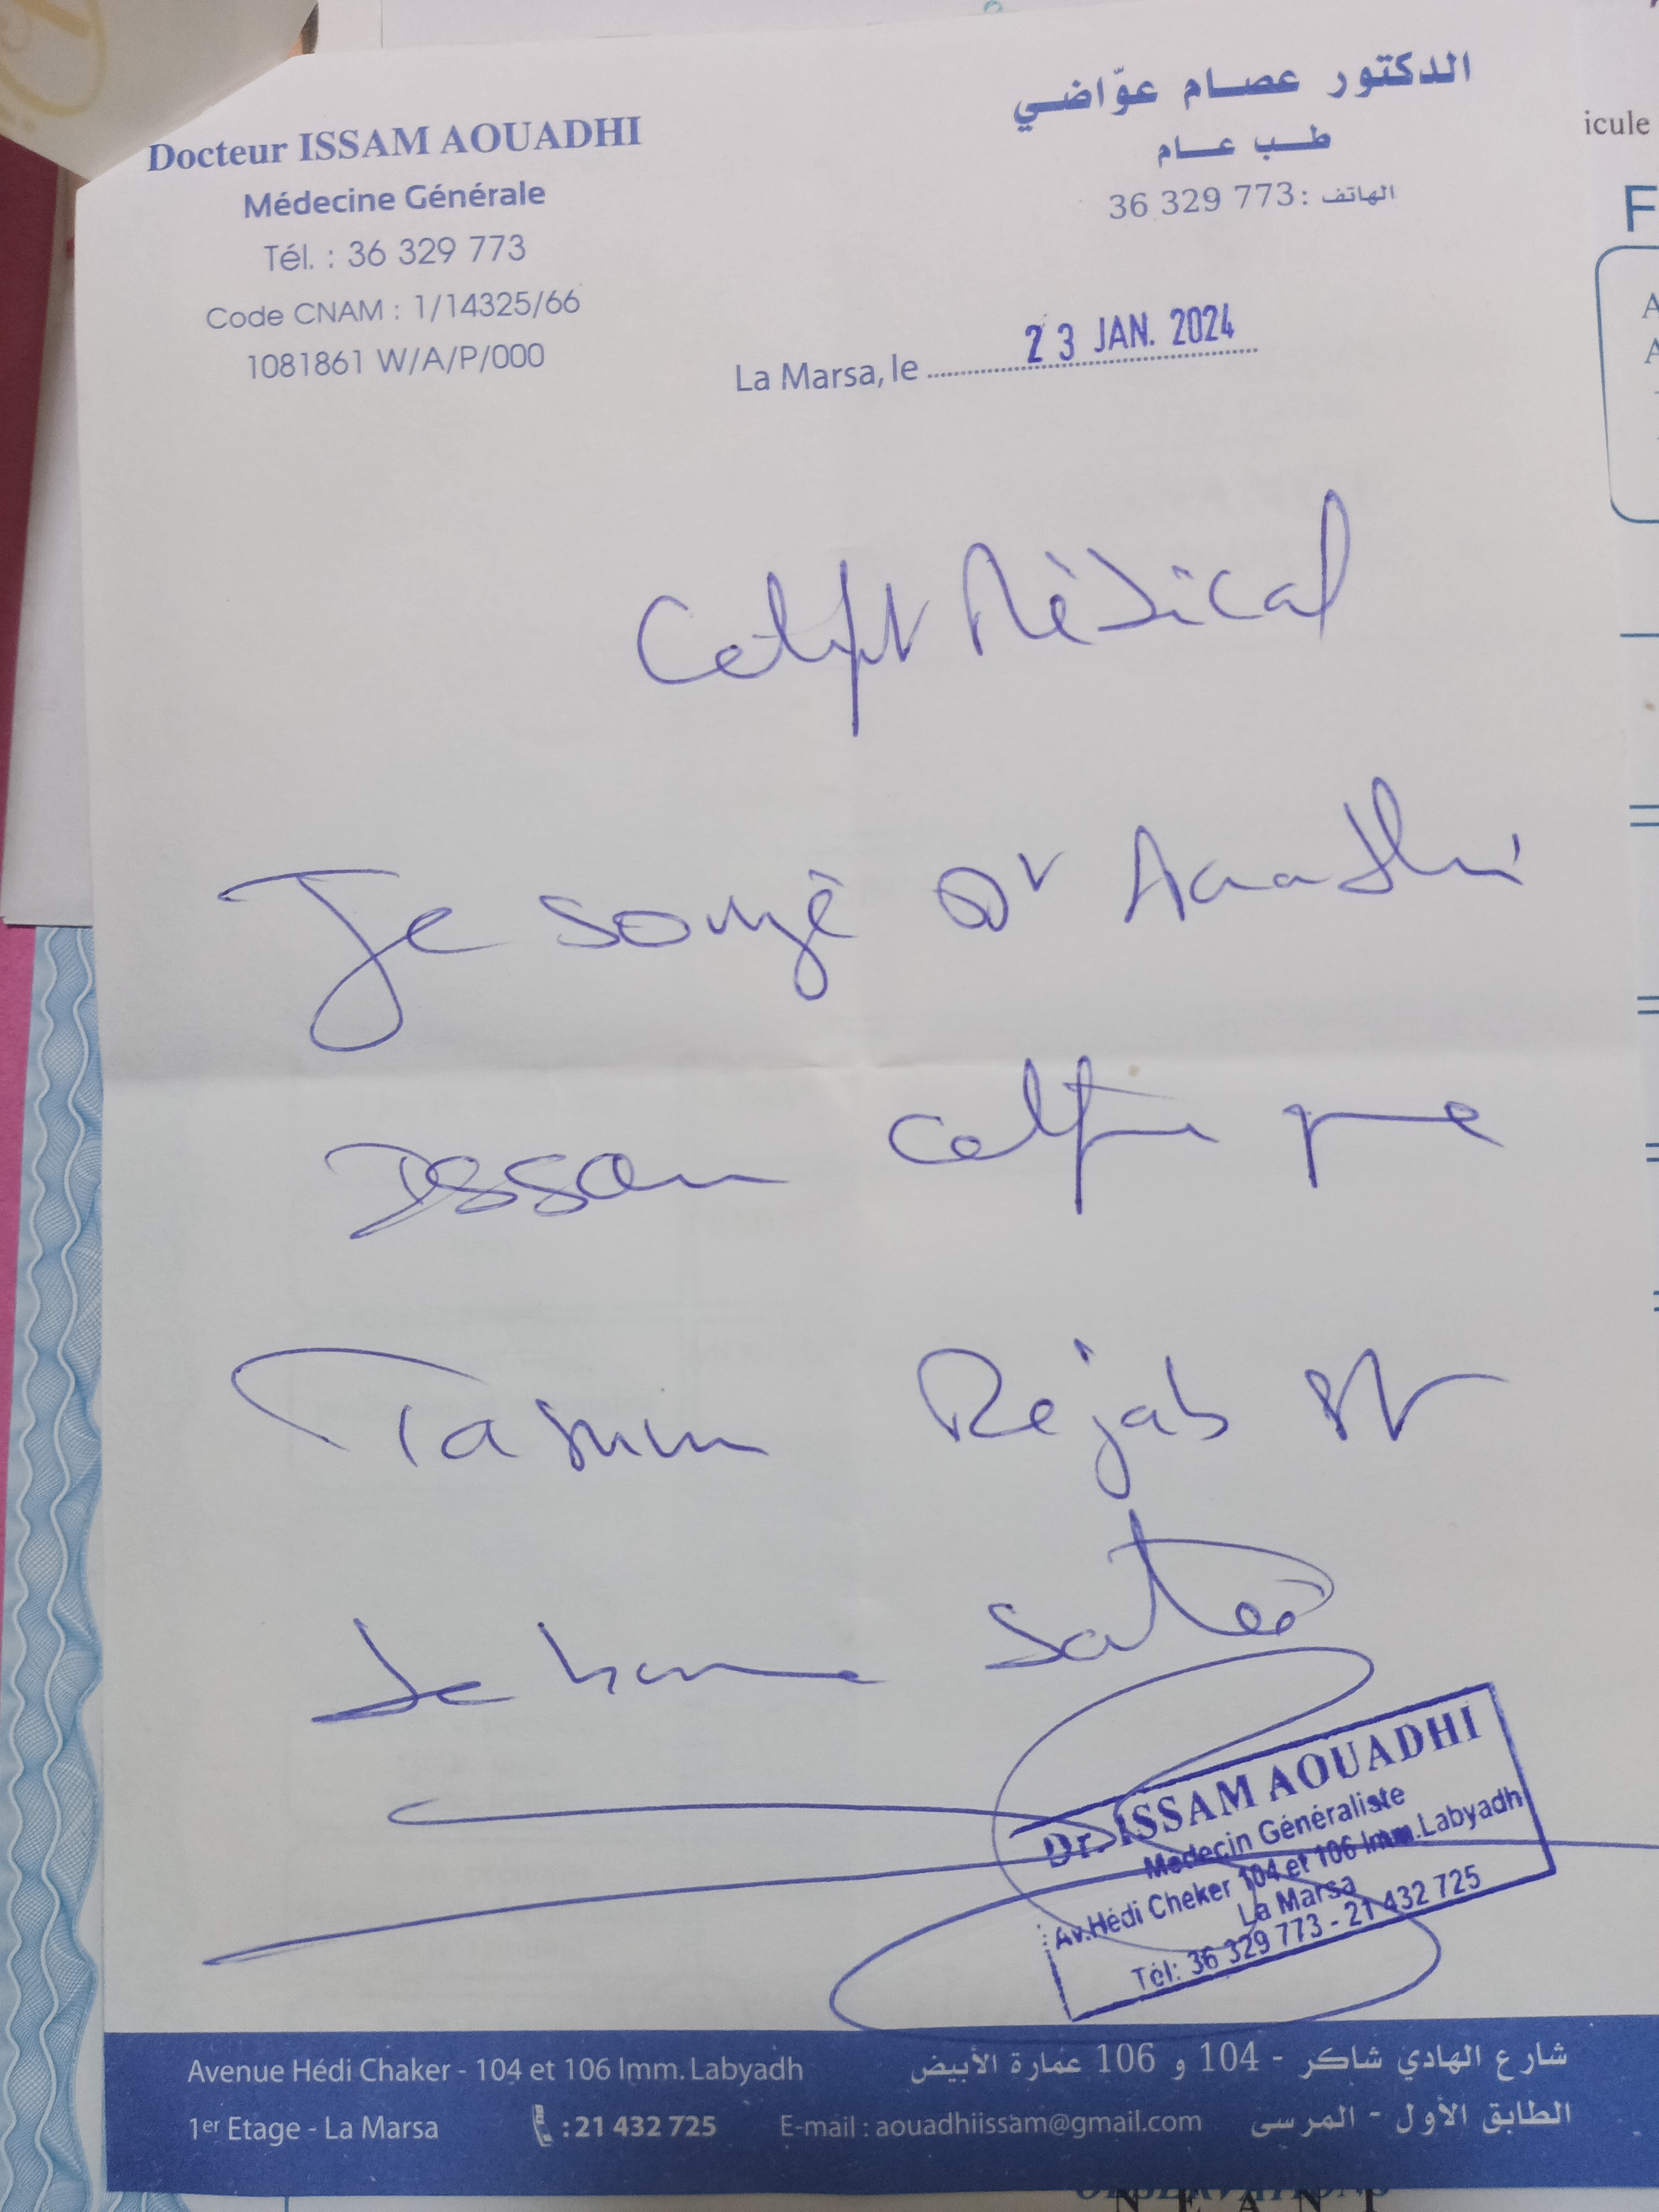 Docteur ISSAM AOUADHI
Médecine Générale
Tél. : 36 329 773
Code CNAM : 1/14325/66
1081861 W/A/P/000
الدكتور عصام عوّاضي
طب عام
الهاتف : 36 329 773
La Marsa, le 23 JAN. 2024
Médical
Je Dr Aouadhi
Issam
Rejab
de bonne santé
Dr. ISSAM AOUADHI
Médecin Généraliste
Av.Hédi Cheker 104 et 106 Imm.Labyadh
La Marsa
Tél: 36 329 773 - 21 432 725
Avenue Hédi Chaker - 104 et 106 Imm. Labyadh
1er Etage - La Marsa : 21 432 725 E-mail : aouadhiissam@gmail.com
شارع الهادي شاكر - 104 و 106 عمارة الأبيض
الطابق الأول - المرسى
icule
F
OBSERVATIONS
NEANT